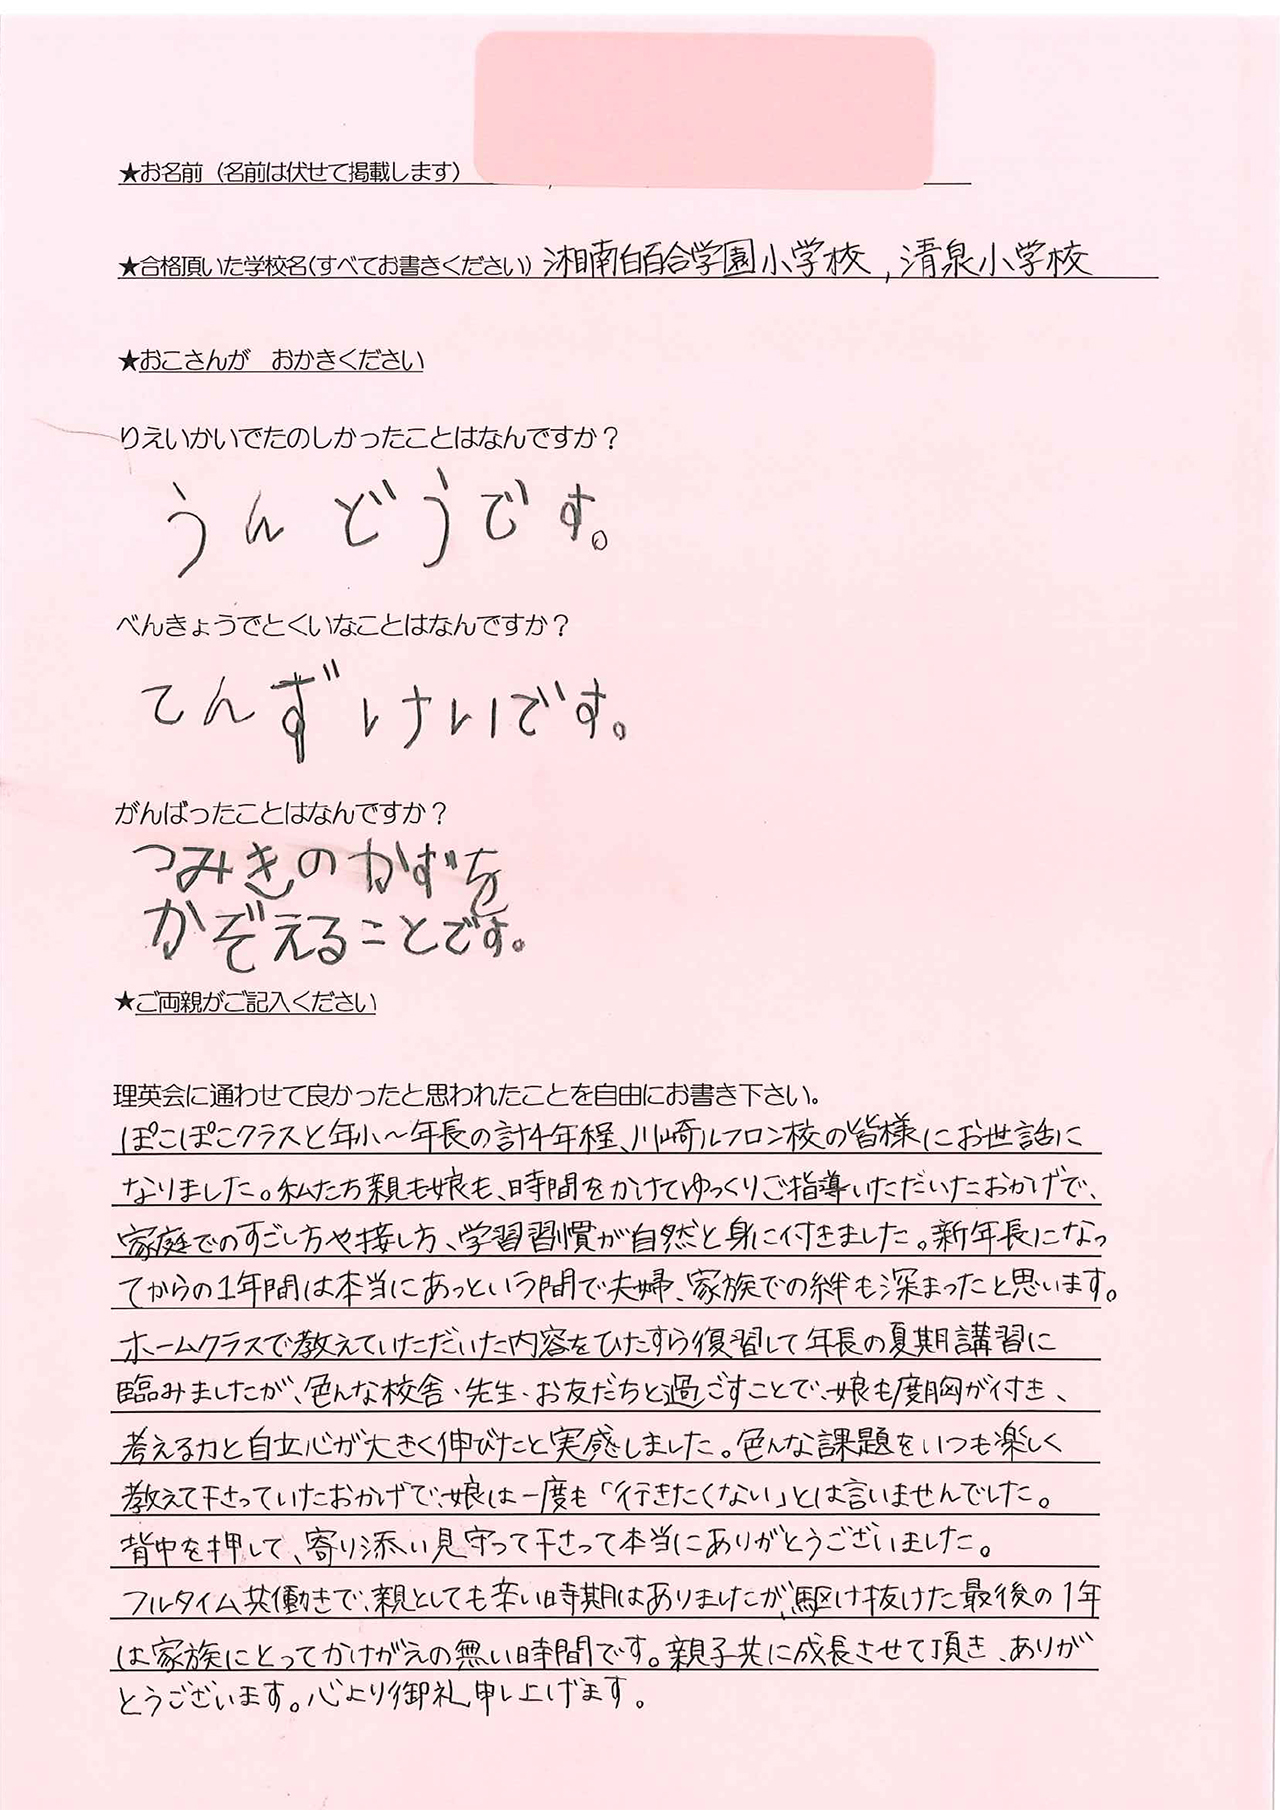 ★お名前（名前は伏せて掲載します）
★合格頂いた学校名(すべてお書きください) 湘南白百合学園小学校 , 清泉小学校
★おこさんが　おかきください
りえいかいでたのしかったことはなんですか？
うんどうです。
べんきょうでとくいなことはなんですか？
てんずけいです。
がんばったことはなんですか？
つみきのかずを
かぞえることです。
★ご両親がご記入ください
理英会に通わせて良かったと思われたことを自由にお書き下さい。
ぽこぽこクラスと年小～年長の計4年程、川崎ルフロン校の皆様にお世話に
なりました。私たち親も娘も、時間をかけてゆっくりご指導いただいたおかげで、
家庭でのすごし方や接し方、学習習慣が自然と身に付きました。新年長になっ
てからの1年間は本当にあっという間で夫婦、家族での絆も深まったと思います。
ホームクラスで教えていただいた内容をひたすら復習して年長の夏期講習に
臨みましたが、色んな校舎・先生・お友だちと過ごすことで、娘も度胸が付き、
考える力と自立心が大きく伸びたと実感しました。色んな課題をいつも楽しく
教えて下さっていたおかげで、娘は一度も「行きたくない」とは言いませんでした。
背中を押して、寄り添い見守って下さって本当にありがとうございました。
フルタイム共働きで、親としても辛い時期はありましたが、駆け抜けた最後の1年
は家族にとってかけがえの無い時間です。親子共に成長させて頂き、ありが
とうございます。心より御礼申し上げます。